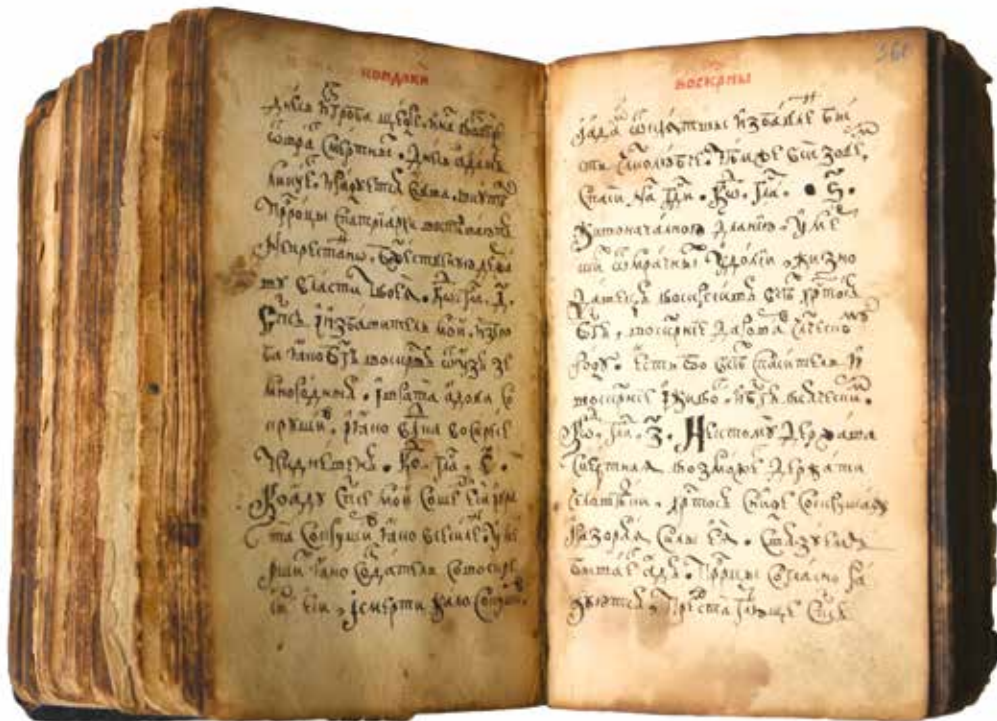 кондаки
днⷭ҇ь и҆згроба щедре, и҆на возве
ѿвра смертны. днⷭ҇ь а҆дамъ
ликуе. и҆радуетсѧ є҆ѵва. вкупѣ
пророцы спатрїархи воспѣваютъ
непрестанно. бжⷭ҇твеную держа
ву власти твоеѧ. Ко. гла. д҃.
Спⷭ҇ъ и҆и҆збавитель мой. и҆згро
ба ꙗ҆ко бг҃ъ воскреси ѿузъ зе
мнородныѧ. и҆врата адова со
круши. и҆ꙗ҆ко влⷣка воскресе
тридневенъ. Ко. гла. є҃.
Ко аду сп҃се мой соше є҆си, и҆вра
та сокруши ꙗ҆ко всесиленъ. умѐ
рши ꙗ҆ко создатель совоскре
си є҆си, и҆смерти жало сокруши.
воскрⷭ҇ны
и҆ада ѿклѧтвы и҆збавле бы
сть чл҃колюбче. тѣмже вси зове,
спаси на гдⷭ҇и. Ко. гла. ѕ҃.
Живоначалною дланїю. умѐ
ршыѧ ѿмрачны удолїи, жизно
давецъ воскресивъ всѣ хрⷭ҇тосъ
бг҃ъ, воскрⷭ҇нїе даде члч҃ско
роду. є҆сть бо всѣ спаситель и҆
воскрⷭ҇нїе и҆живо. и҆бг҃ъ всѧчески.
Ко. гла. з҃. Нектому держава
смертнаѧ возможе держати
человѣки. хрⷭ҇тосъ сниде сокрушаѧ
и҆разорѧѧ силы є҆ѧ. свѧзуемь
бываѐ адъ. пророцы согласно ра
дуютсѧ. предста глⷣюще сп҃съ